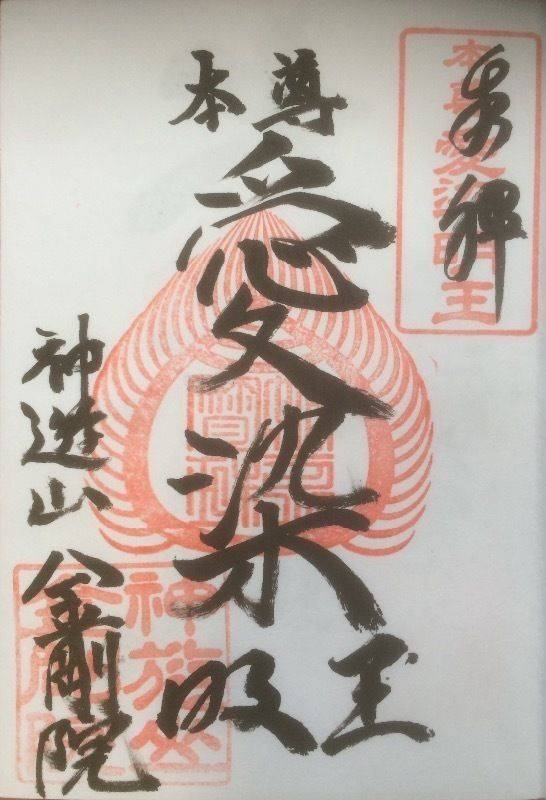 奉拝
本尊愛染明王
本尊
愛染
明王
神遊山
金剛院
神遊山
金剛院